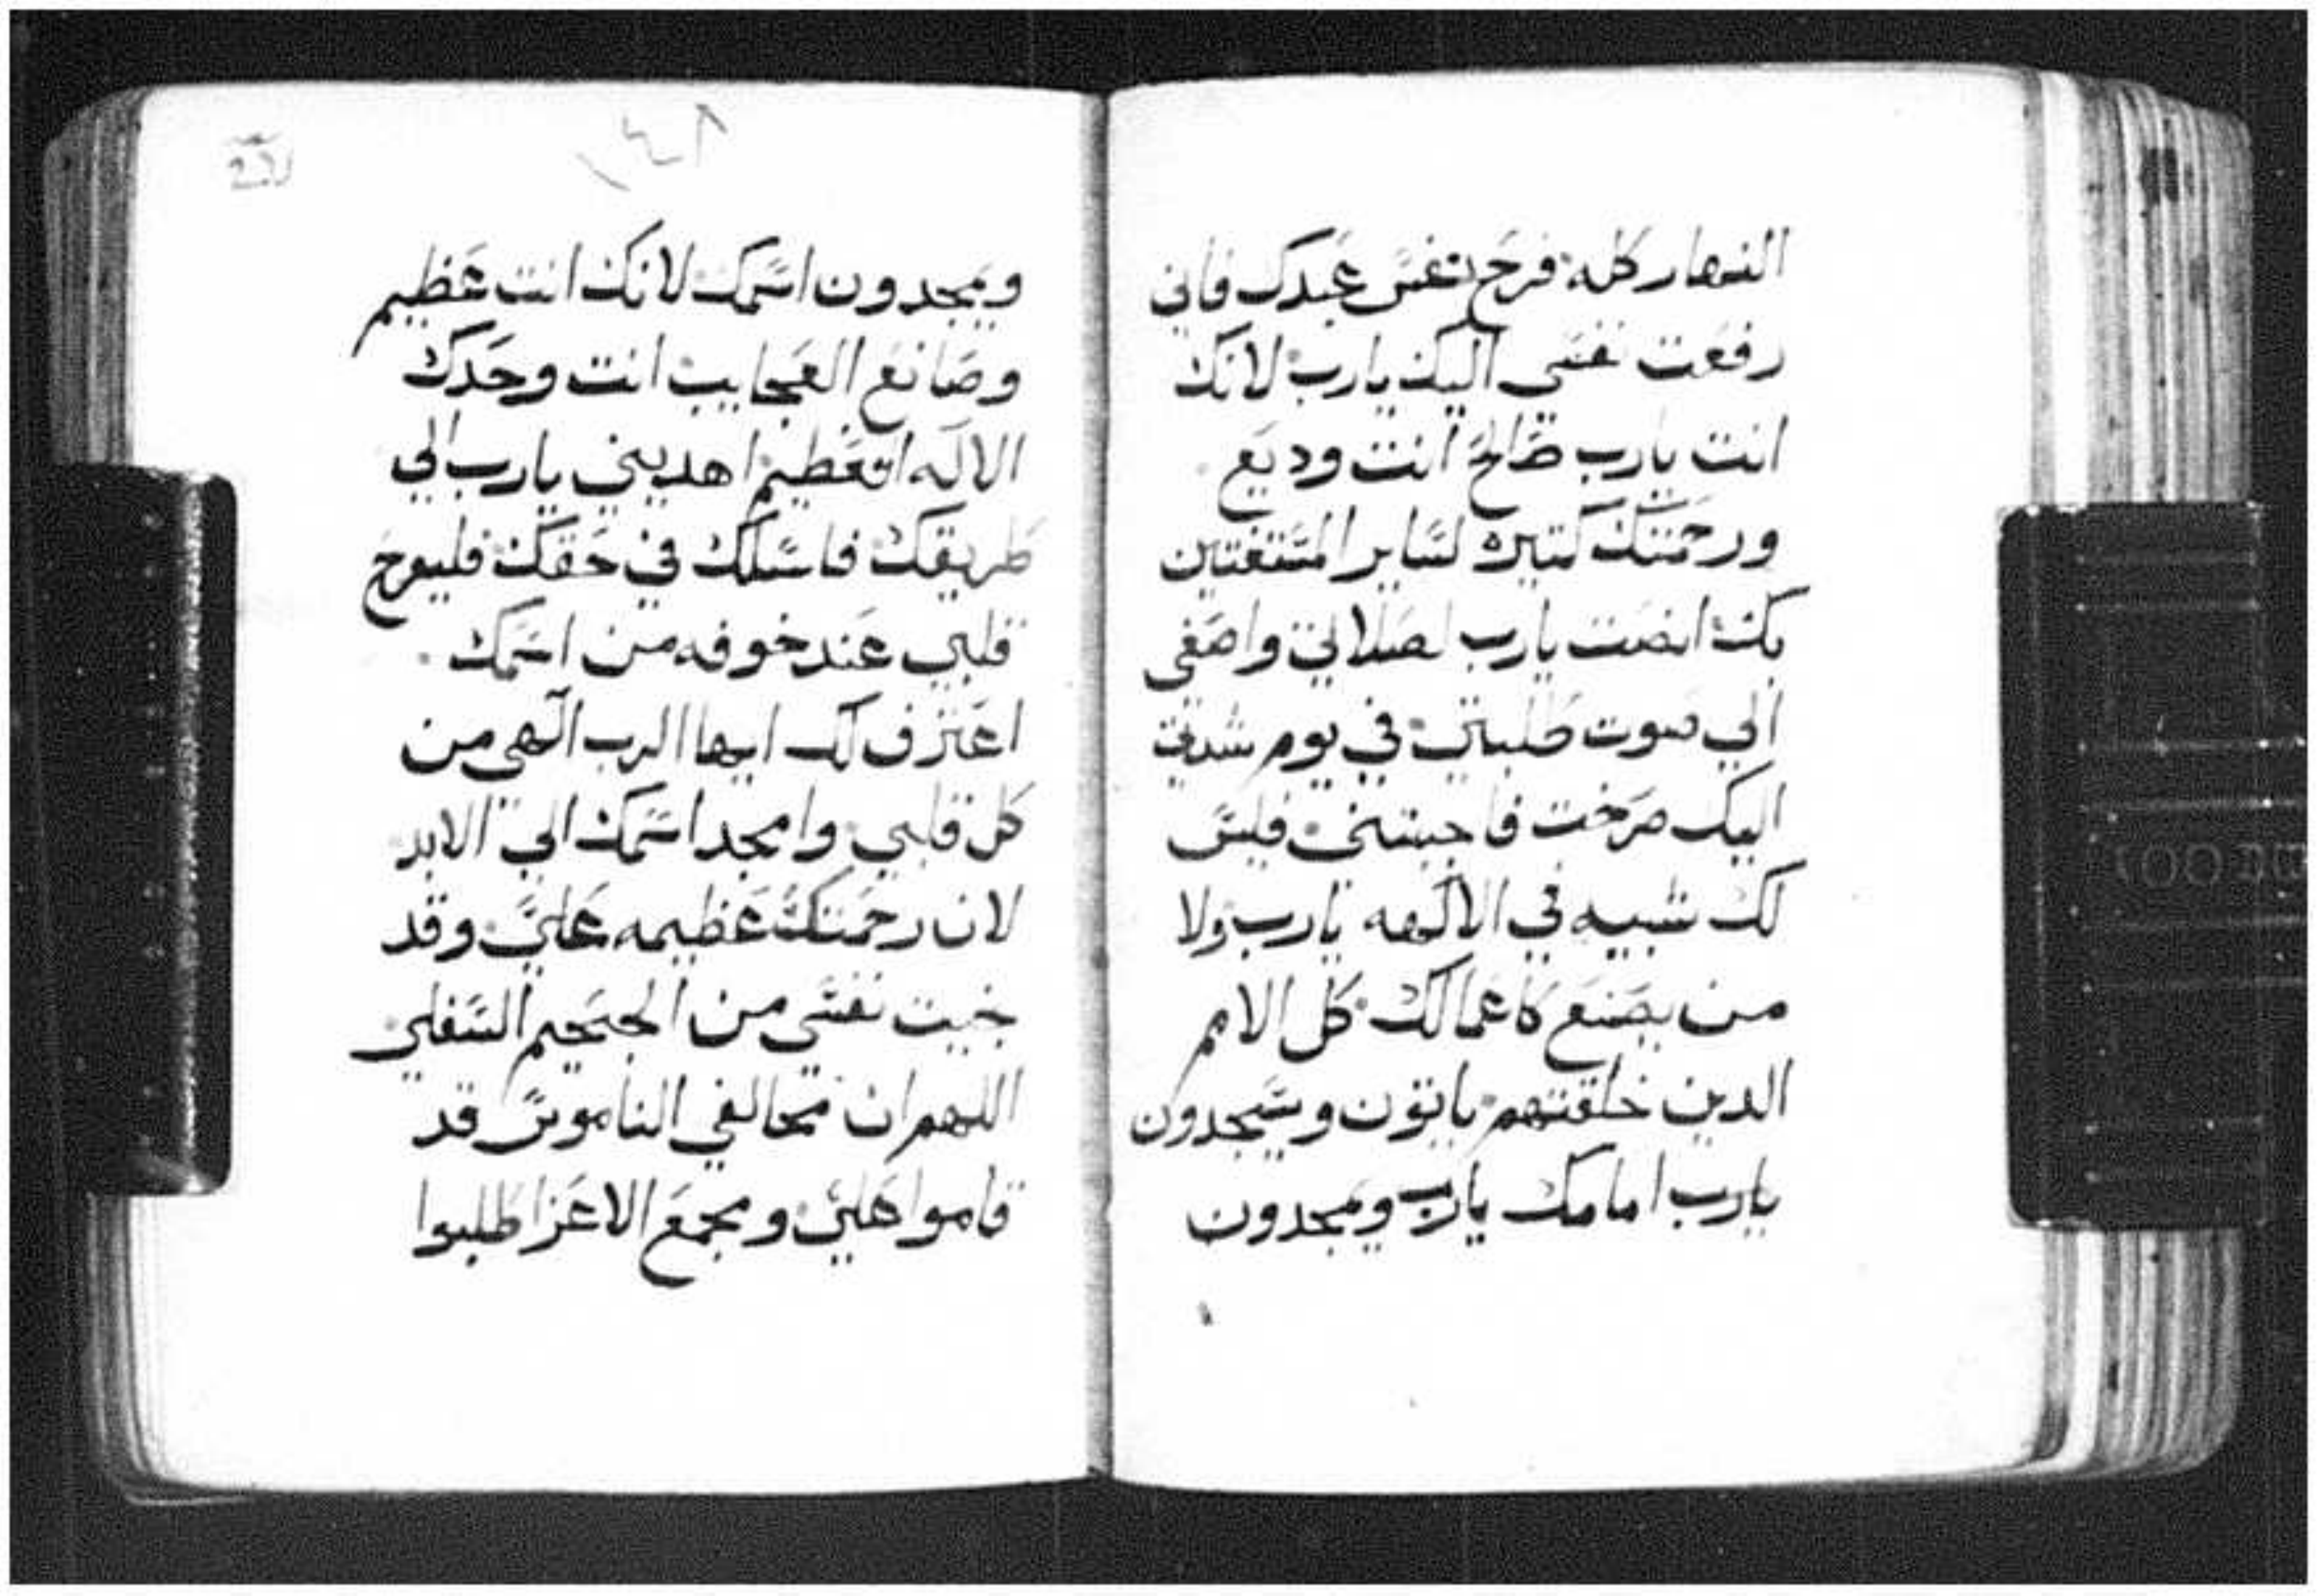 النهار كله فرح نفس عبدك فاني
رفعت نفسي اليك يارب لانك
انت يارب صالح انت وديع
ورحمتك كتيره لساير المستغتين
بك انصت يارب لصلاتي واصغى
الي صوت طلبتي في يوم شدتي
اليك صرخت فاجبتني فليس
لك شبيه في الالهه يارب ولا
من يصنع كاعمالك كل الامم
الدين خلقتهم ياتون ويسجدون
يارب امامك يارب ويمجدون
١٤٨
ويمجدون اسمك لانك انت عظيم
وصانع العجايب انت وحدك
الاله العظيم اهديني يارب الي
طريقك فاسلك في حقك فليفرح
قلبي عند خوفه من اسمك
اعترف لك ايها الرب الهي من
كل قلبي وامجد اسمك الي الابد
لان رحمتك عظيمه علي وقد
نجيت نفسي من الجحيم السفلي
اللهم ان مخالفي الناموس قد
قاموا علي ومجمع الاعزا طلبوا